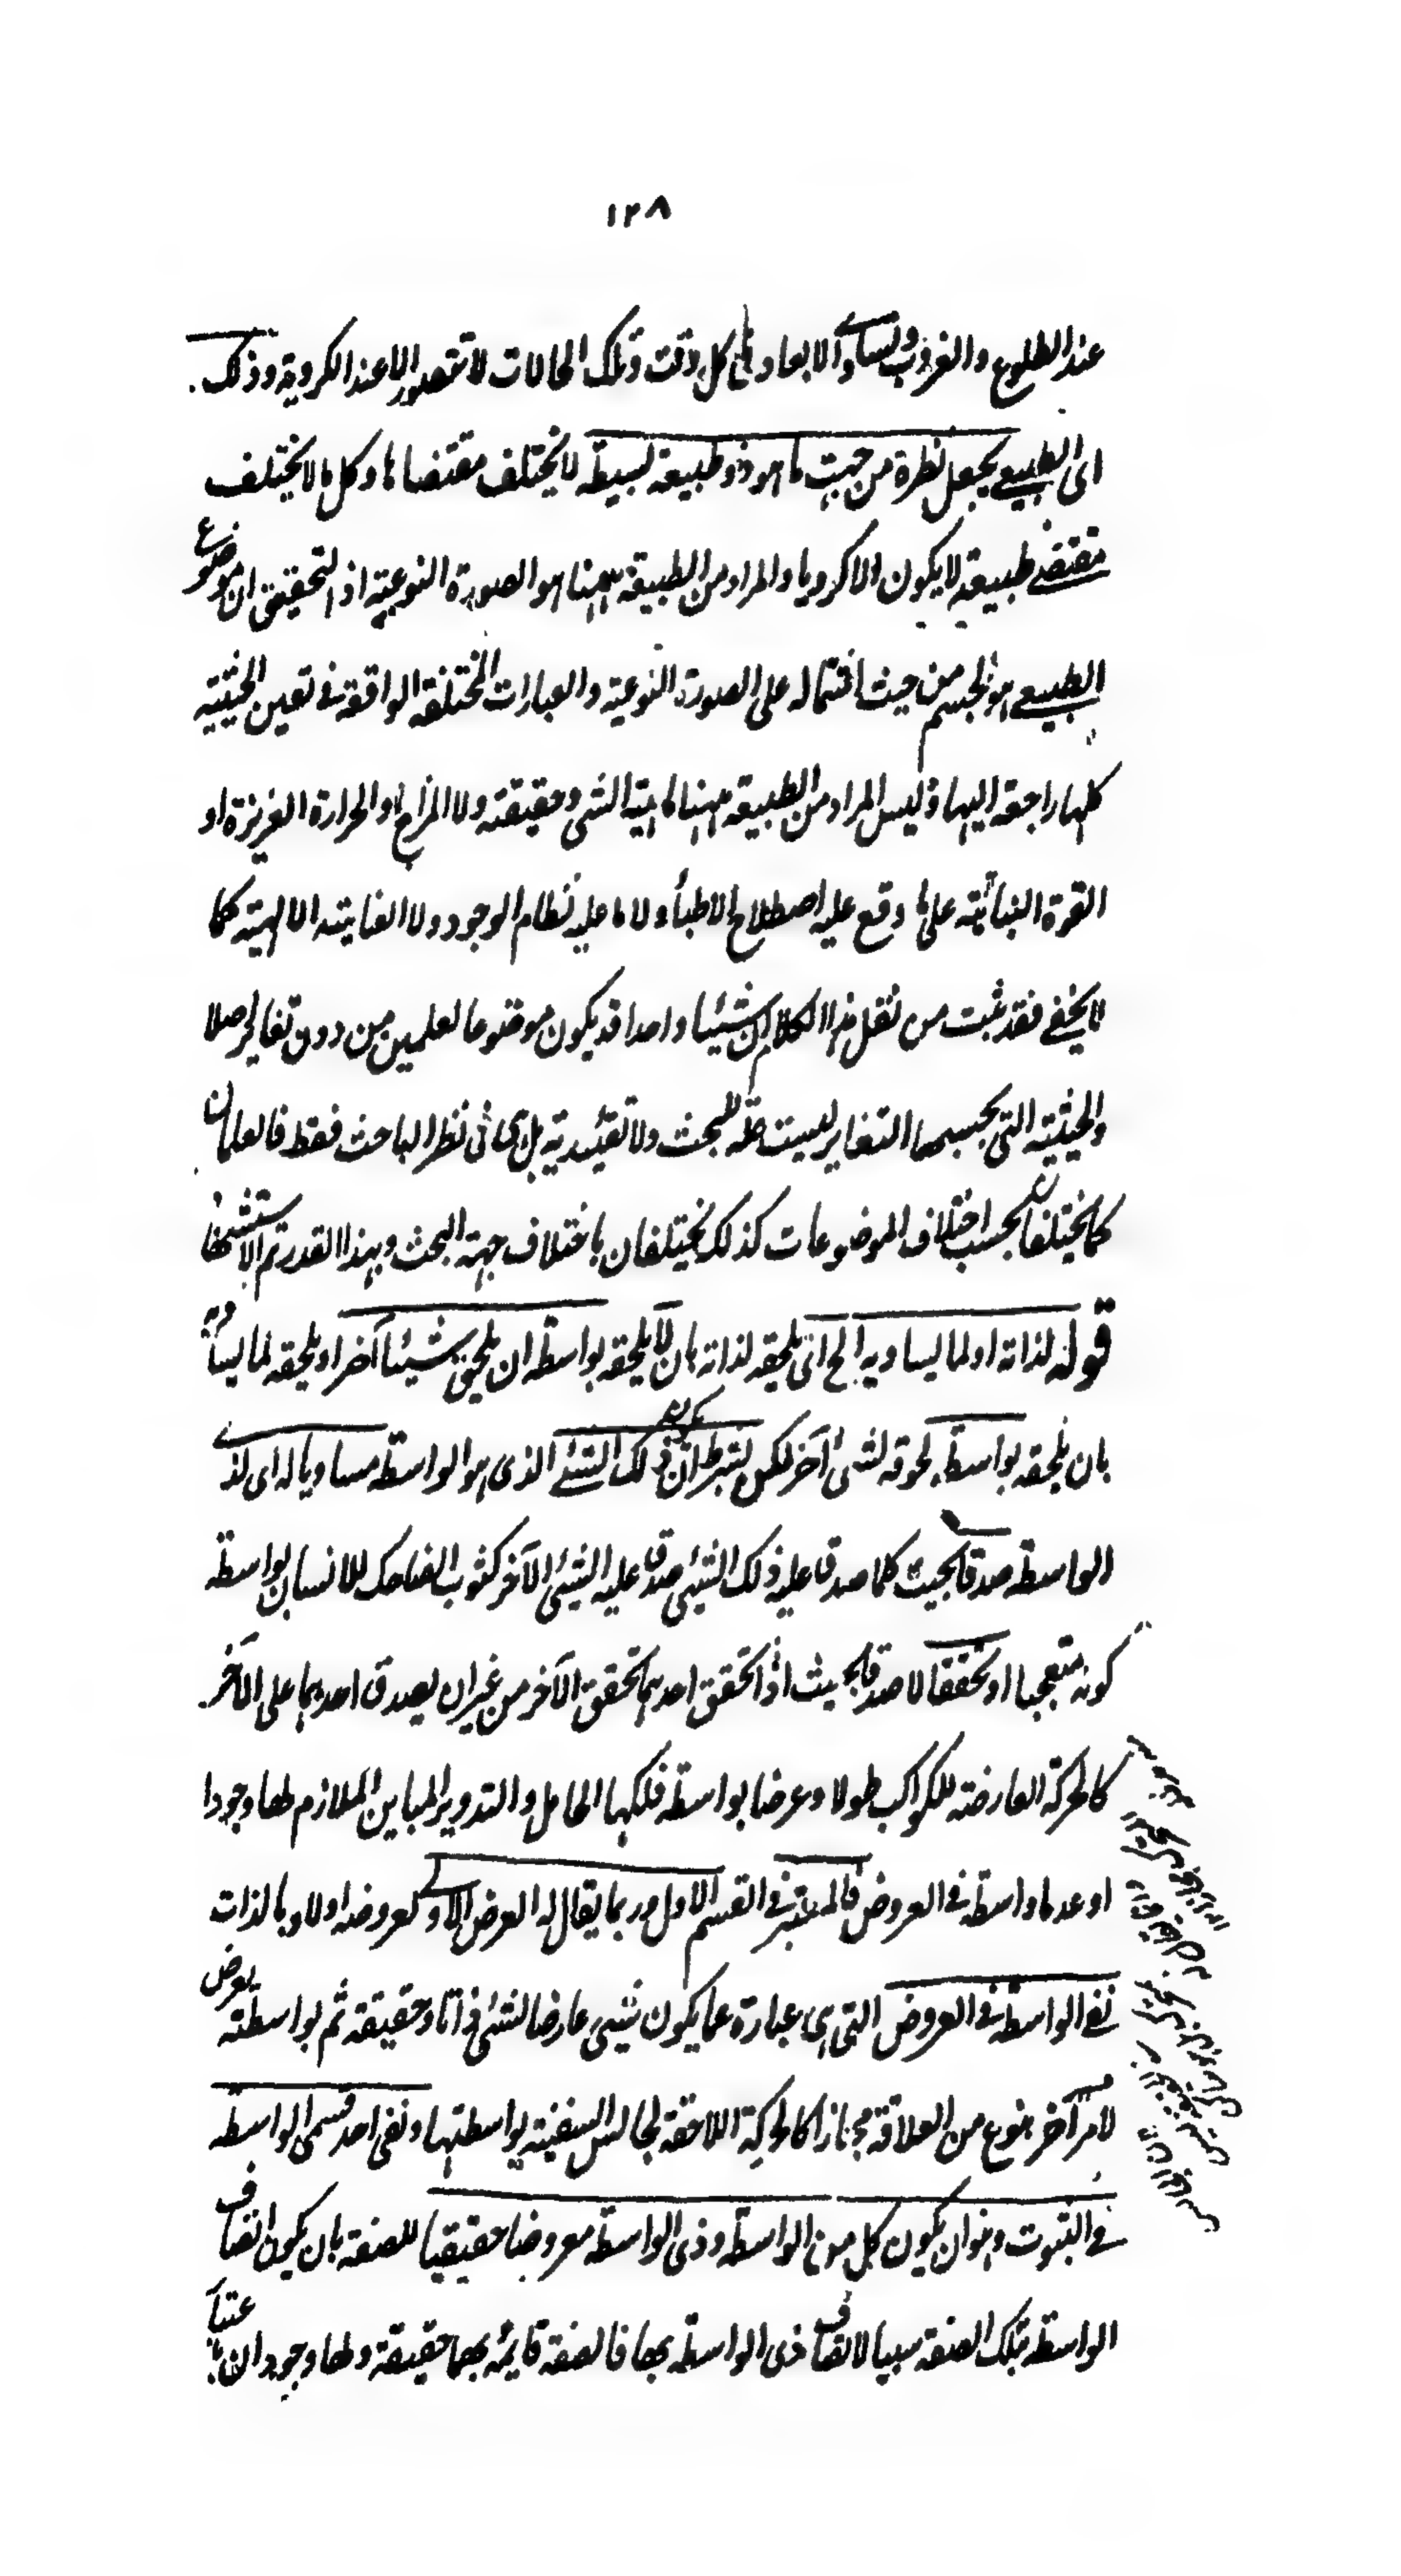 ١٢٨
عند الطلوع والغروب وتساوى الابعاد فى كل وقت وتلك الحالات لا تتصور الا عند الكروية وذلك
اى الطبيعى يجعل نظره من جهت ما هو ذو طبيعة بسيطة لا يختلف مقتضاها وكل ما لا يختلف
مقتضى طبيعته لا يكون الا كرويا والمراد من الطبيعة ههنا هو الصورة النوعية اذ التحقيق ان موضوع
الطبيعى هو الجسم من حيث اشتماله على الصورة النوعية والعبارات المختلفة الواقعة فى تعين الحيثية
كلها راجعة اليها وليس المراد من الطبيعة ههنا ماهية الشى وحقيقته ولا المزاج او الحرارة الغريزة او
القوة النباتية على ما وقع عليه اصطلاح الاطباء ولا ما عليه نظام الوجود ولا العناية الالهية كما
لا يخفى فقد ثبت من نقل هذا الكلام ان شيئا واحدا قد يكون موضوعا لعلمين من دون تغاير اصلا
والحيثية التى بحسبها التغاير ليست علة للبحث ولا تقييدية بل هى فى نظر الباحث فقط فالعلمان
كما يختلفان بحسب اختلاف الموضوعات كذلك يختلفان باختلاف جهة البحث وبهذا القدر تم الاستشهاد
قوله لذاته او لما يساويه الخ اى يلحقه لذاته بان لا يلحقه بواسطة ان يلحق شيئا آخر او يلحقه لما يساويه
بان يلحقه بواسطة لحوقه لشئ آخر لكن بشرط ان يكون ذلك الشئ الذى هو الواسطة مساويا له اى لذى
الواسطة صدقا بحيث كلما صدق عليه ذلك الشئ صدق عليه الشئ الآخر كثبوت الضاحك للانسان بواسطة
كونه متعجبا او تحققا لا صدقا بحيث اذا تحقق احدهما تحقق الآخر من غير ان يصدق احدهما على الآخر
كالحركة العارضة للكواكب طولا وعرضا بواسطة فلكها الحامل والتدوير المباين الملازم لها وجودا
او عدما واسطة فى العروض فالمعتبر فى القسم الاول وربما يقال له العرض الاولى لعروضه اولا وبالذات
نفى الواسطة فى العروض التى هى عبارة عما يكون شيئ عارضا لشئ ذاتا وحقيقة ثم بواسطته يعرض
لامر آخر بنوع من العلاقة مجازا كالحركة اللاحقة لجالس السفينة بواسطتها ونفى احد قسمى الواسطة
فى الثبوت وهو ان يكون كل من الواسطة وذى الواسطة معروضا حقيقيا للصفة بان يكون اتصاف
الواسطة بتلك الصفة سببا لاتصاف ذى الواسطة بها فالصفة قايمة بهما حقيقة ولها وجودان باعتبار